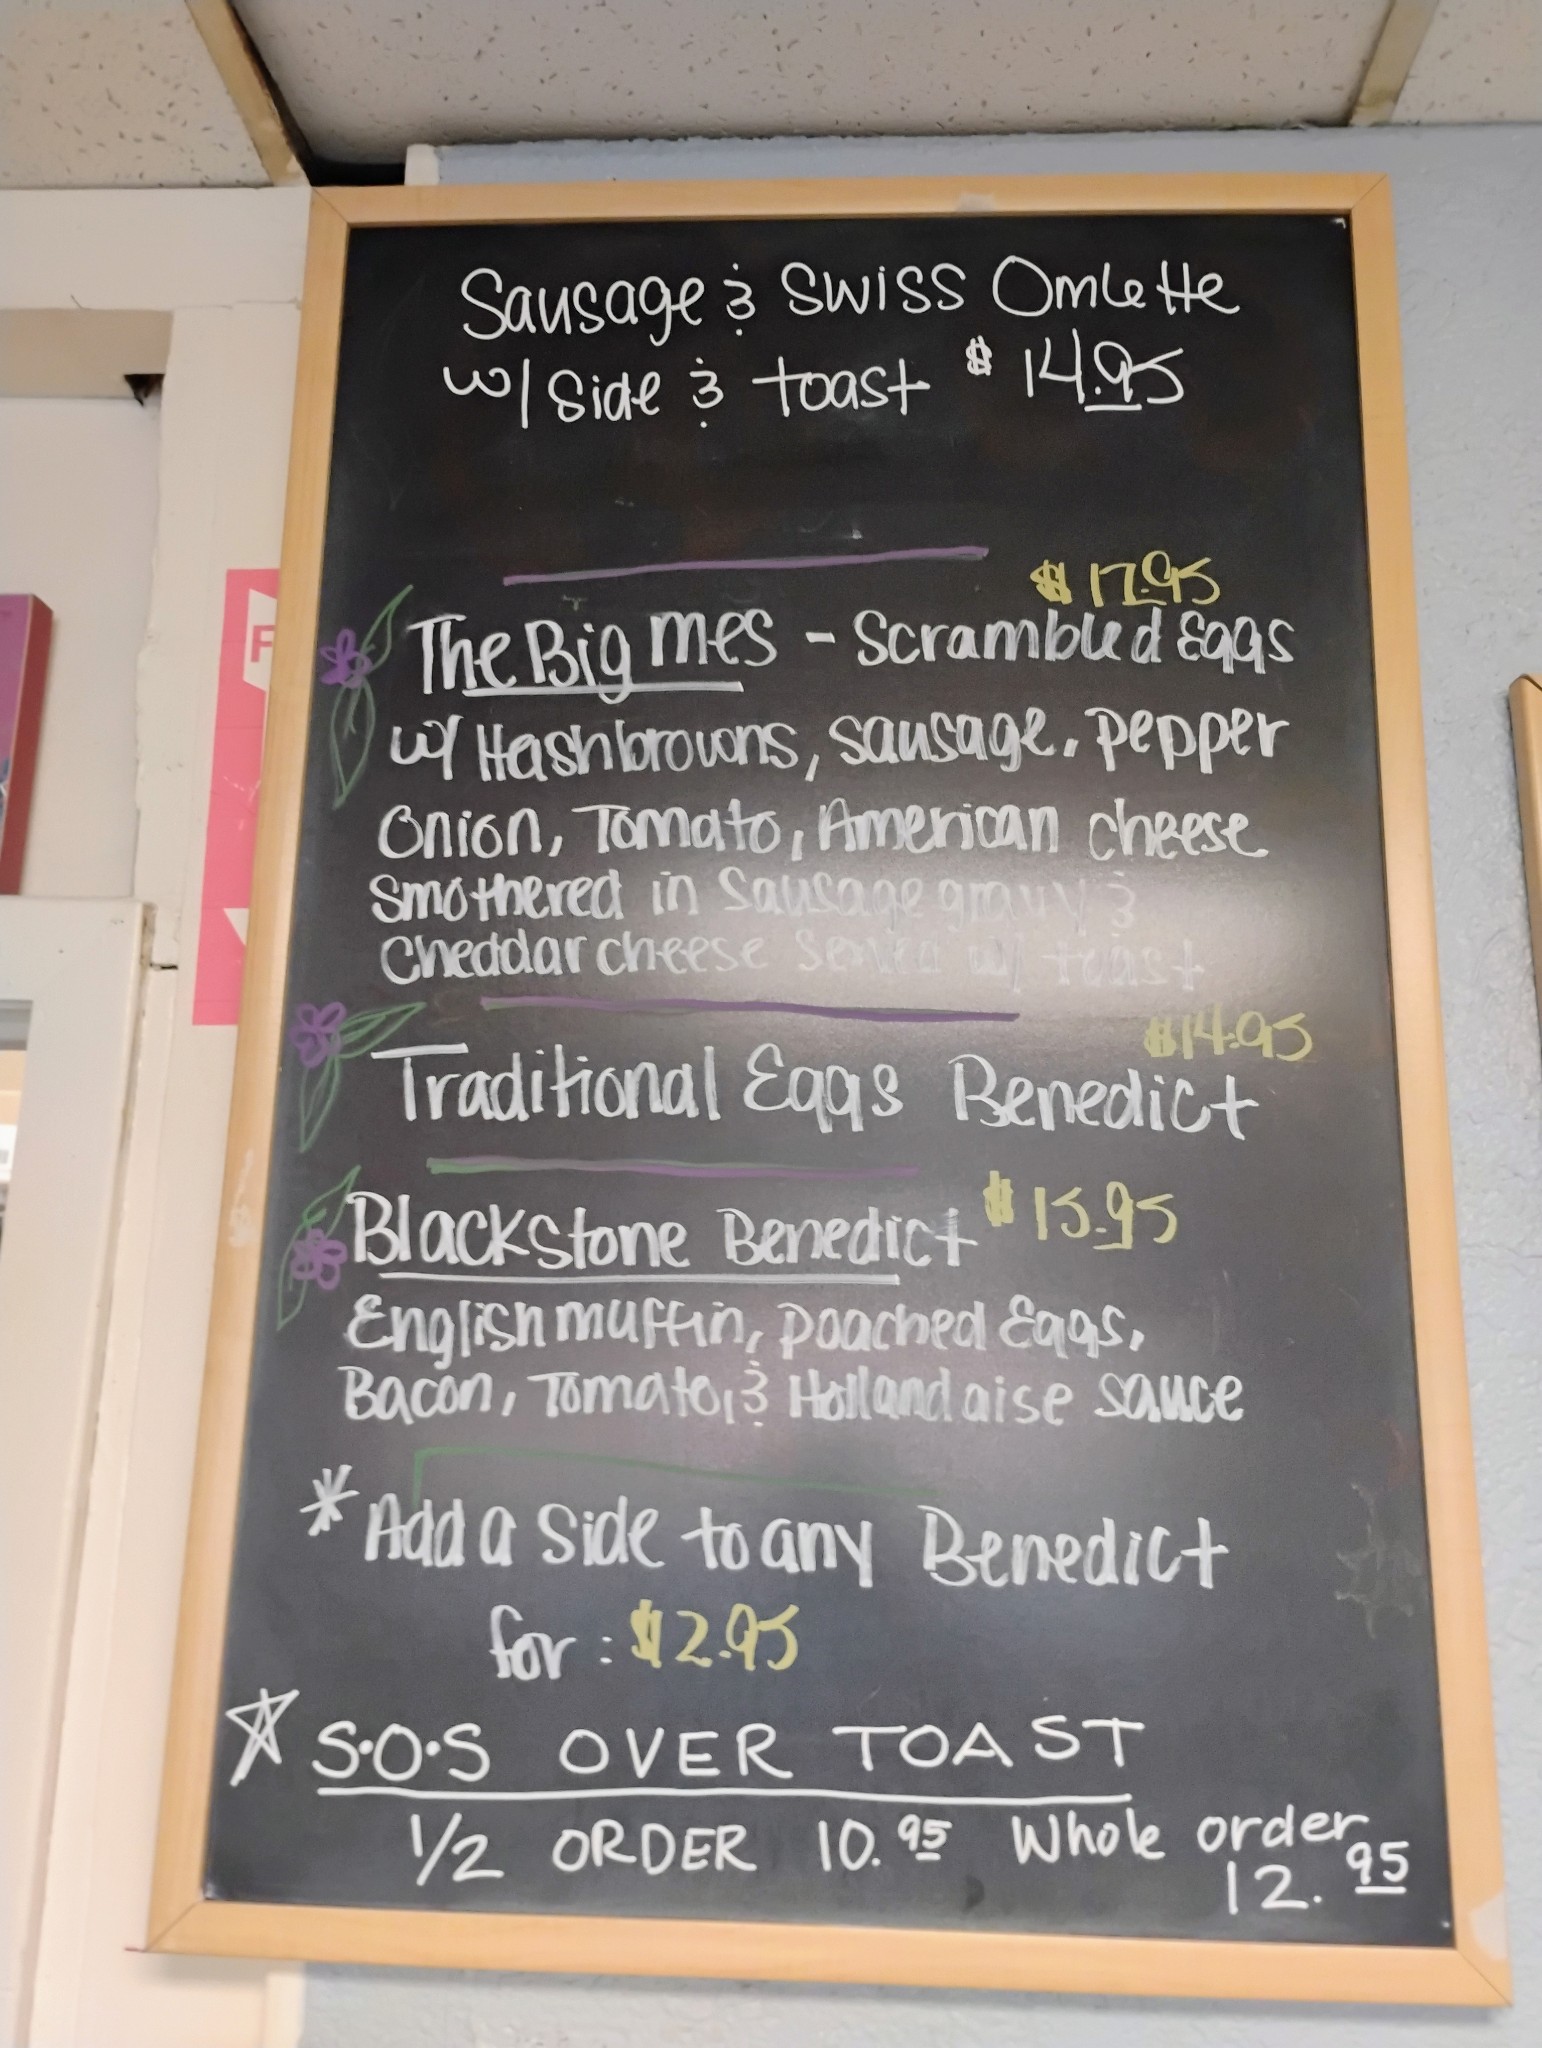 Sausage & SWISS Omlette
w/ Side & toast $14.95
$17.95
The Big mes - Scrambled Eggs
w/ Hashbrowns, sausage, pepper
Onion, Tomato, American cheese
Smothered in Sausage gravy &
Cheddar cheese Served w/ toast
$14.95
Traditional Eggs Benedict
Blackstone Benedict $15.95
English muffin, poached Eggs,
Bacon, Tomato, & Hollandaise sauce
*Add a side to any Benedict
for: $2.95
S.O.S OVER TOAST
1/2 ORDER 10.95 Whole order
12.95